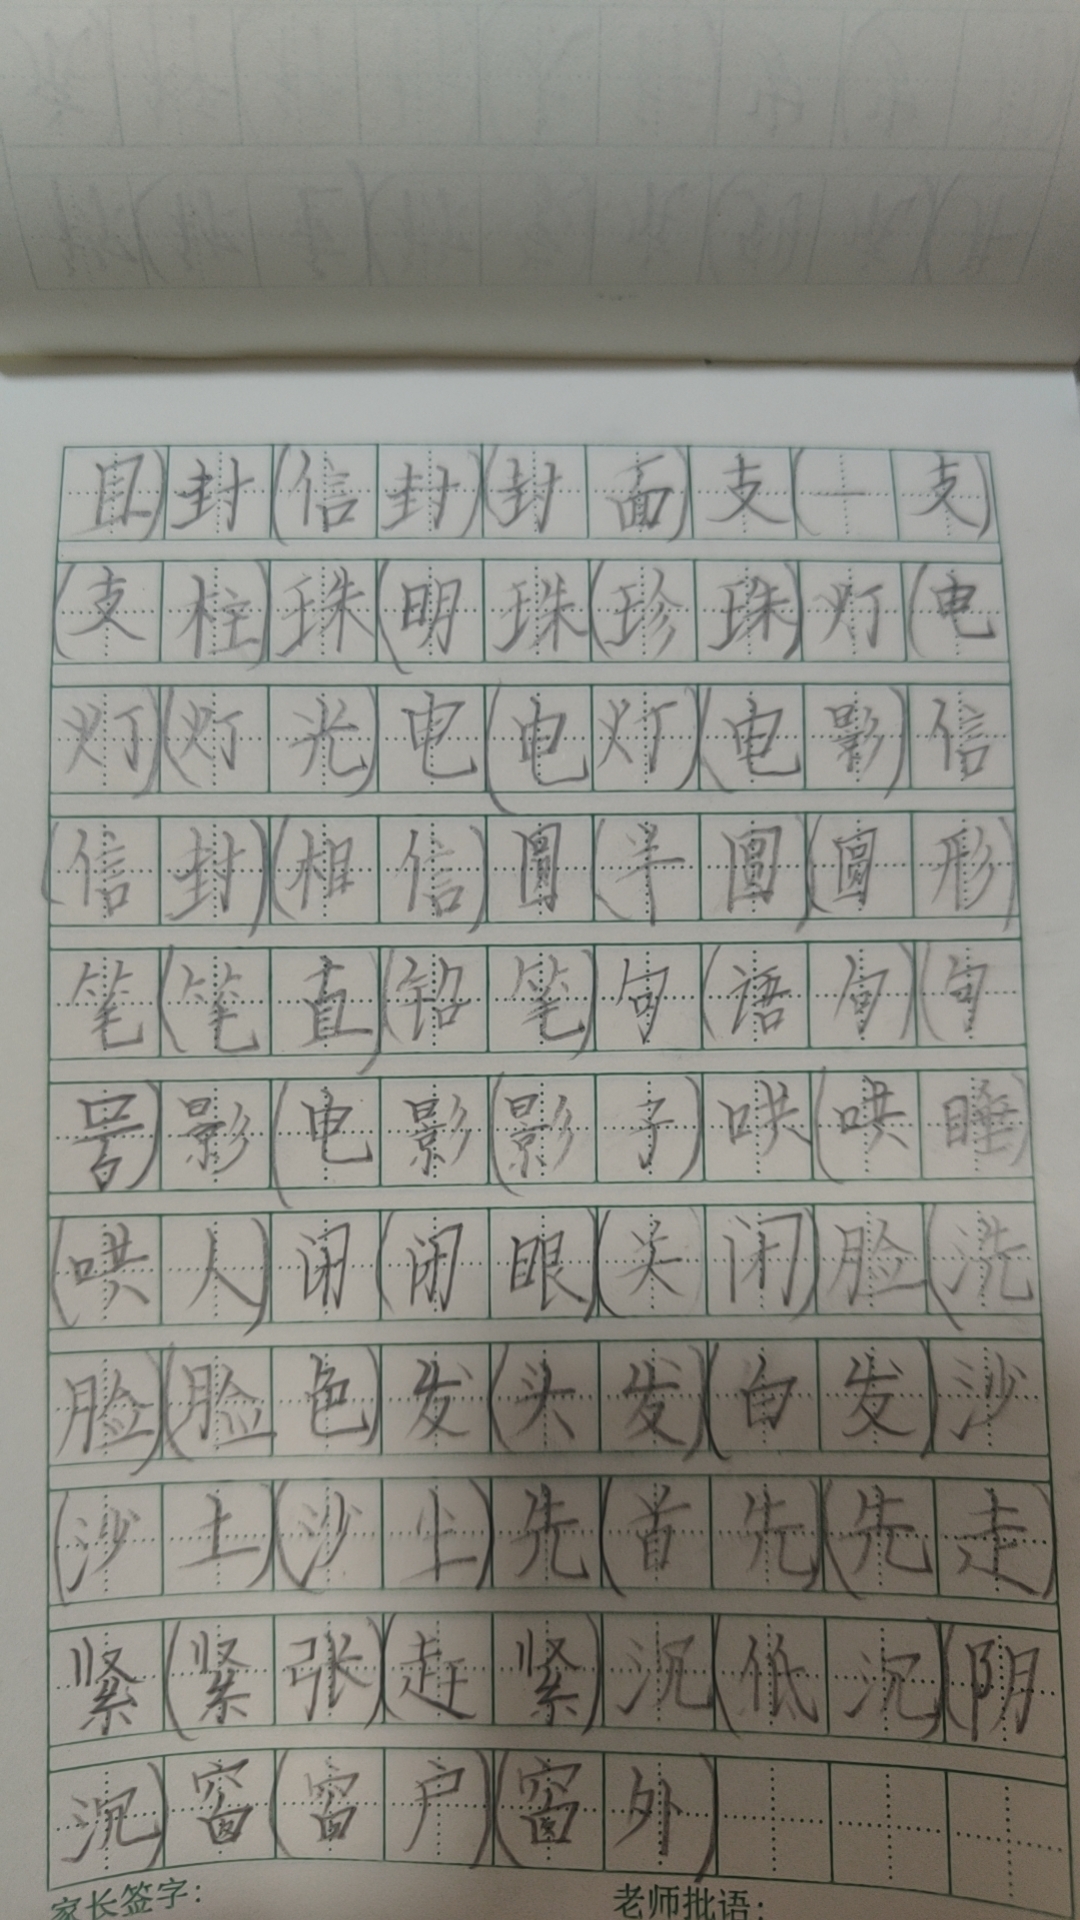 目)封(信封)(封面)支(一支)
(支柱)珠(明珠)(珍珠)灯(电
灯)(灯光)电(电灯)(电影)信
(信封)(相信)圆(半圆)(圆形)
笔(笔直)(铅笔)句(语句)(句
号)影(电影)(影子)哄(哄睡)
(哄人)闭(闭眼)(关闭)脸(洗
脸)(脸色)发(头发)(白发)沙
(沙土)(沙尘)先(首先)(先走)
紧(紧张)(赶紧)沉(低沉)(阴
沉)窗(窗户)(窗外)
家长签字: 老师批语: